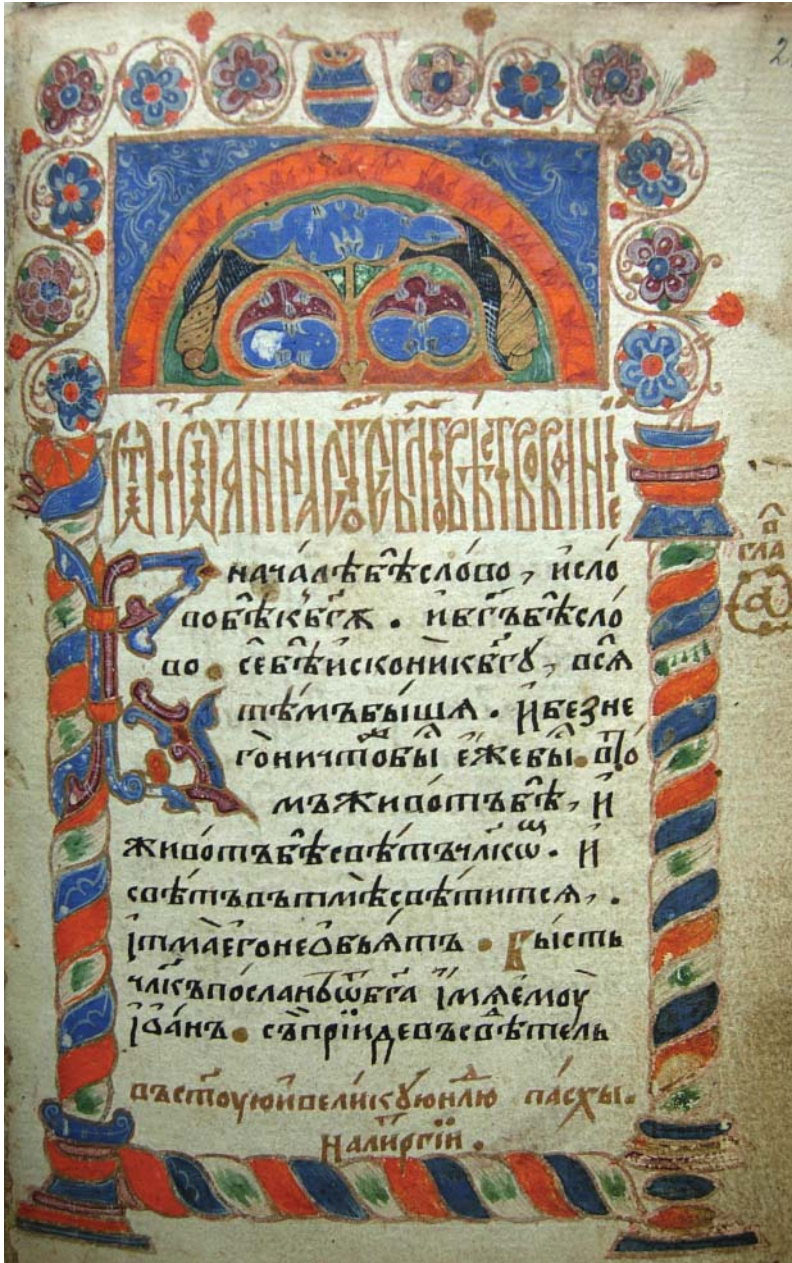 2
Ѿ іѡа́нна ст҃ое бл҃говѣствованїе
В нача́лѣ бѣ̀ сло́во, и҆ сло
во бѣ̀ к бг҃ꙋ. и҆ бг҃ъ бѣ̀ сло
во. се́ бѣ̀ и҆скони́ к бг҃ꙋ, всѧ̀
тѣ́мъ бы́шѧ. и҆ без не
го̀ ничто́же бы́сть е҆́же бы́сть. в то́
мъ живо́тъ бѣ̀, и҆
живо́тъ бѣ̀ свѣ́тъ чл҃кѡⷨ. и҆
свѣ́тъ въ тмѣ̀ свѣ́титсѧ,.
і҆ тма̀ е҆го̀ не ѡ҆бъѧ́тъ. Бы́сть
чл҃къ по́сланъ ѿ бг҃а і҆́мѧ е҆моу̀
і҆ѡа́нъ. съ́ прїи́де въ свѣ́тель
въ ст҃оую и҆ вели́кꙋю нⷣлю па́схы.
на лиⷮргїи.
гла
в҃
а҃